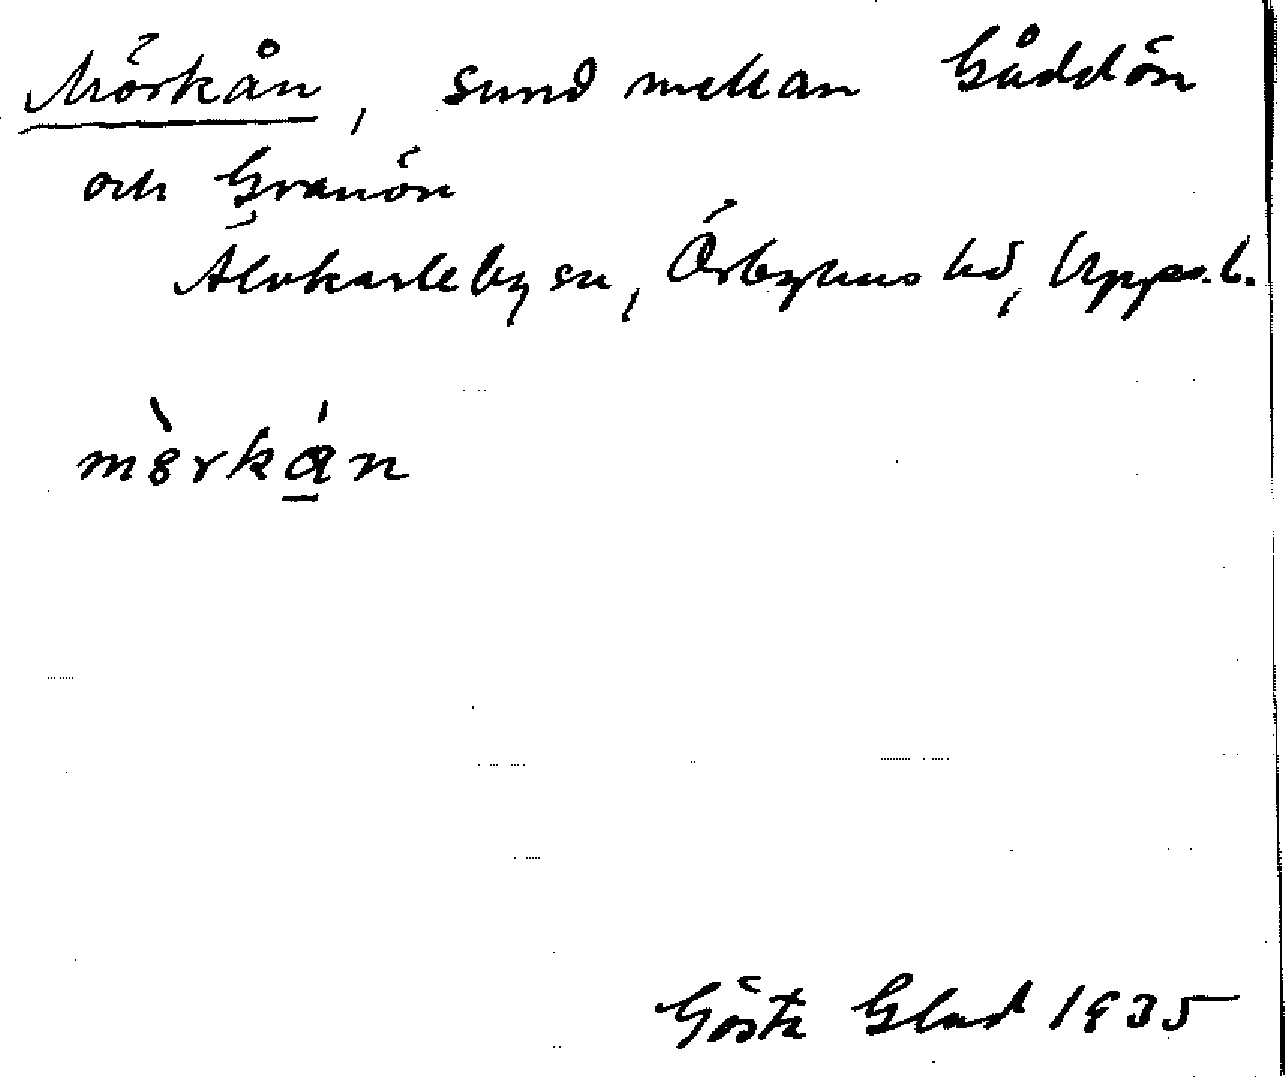 Mörkån, sund mellan Gåddön
och Granön
Älvkarleby sn, Örbyhus hd, Upps. l.
mörkån
Gösta Glad 1935